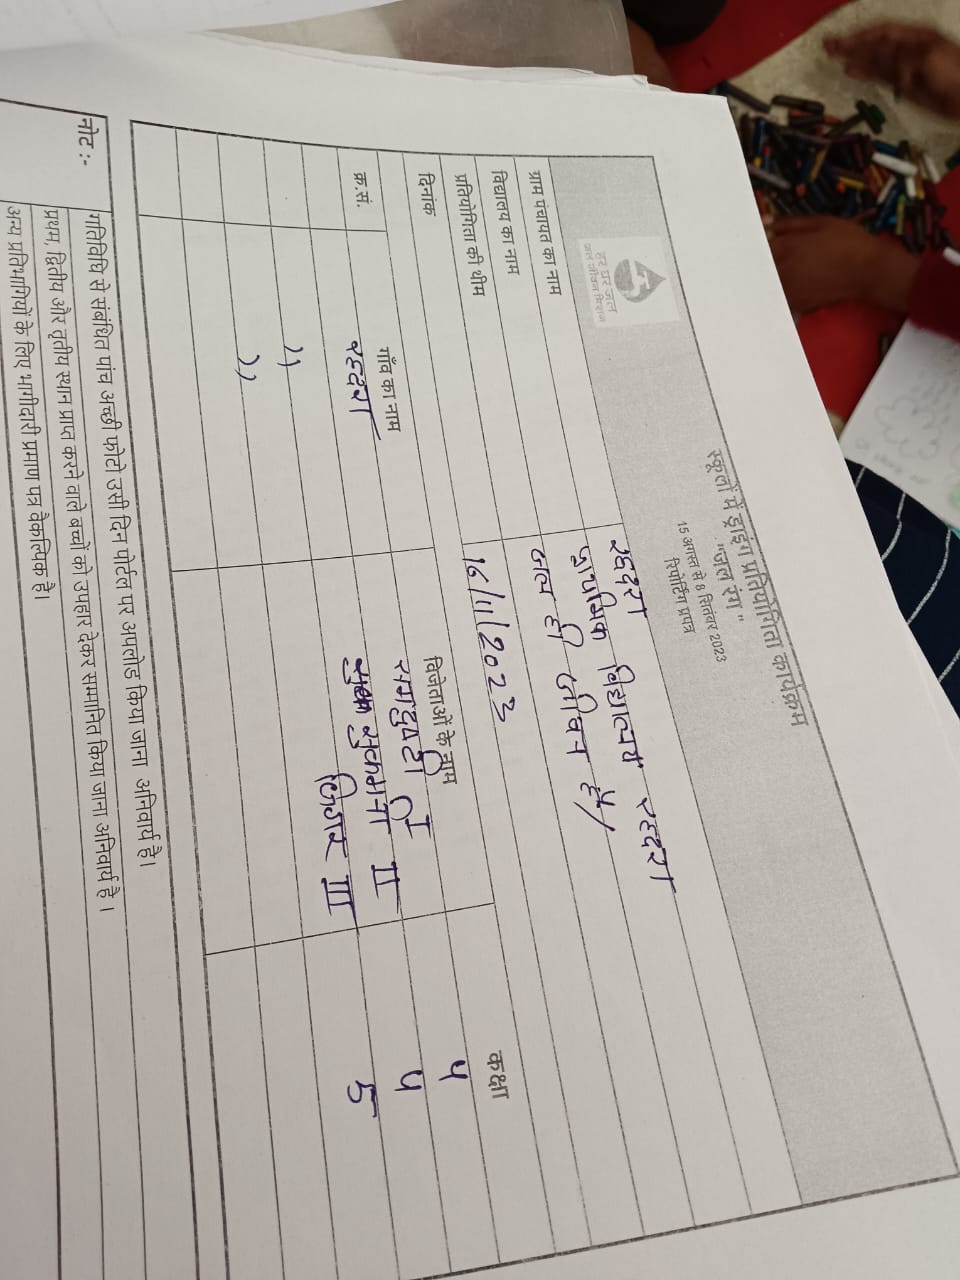 हर घर जल
जल जीवन मिशन
स्कूलों में ड्राइंग प्रतियोगिता कार्यक्रम
"जल रंग"
15 अगस्त से 8 सितंबर 2023
रिपोर्टिंग प्रपत्र
ग्राम पंचायत का नाम
विद्यालय का नाम प्राथमिक विद्यालय
प्रतियोगिता की थीम जल ही जीवन है/
दिनांक 16/11/2023
क्र.सं. गाँव का नाम विजेताओं के नाम कक्षा
I 4
II 4
III 5
नोट :- गतिविधि से संबंधित पांच अच्छी फोटो उसी दिन पोर्टल पर अपलोड किया जाना अनिवार्य है।
प्रथम, द्वितीय और तृतीय स्थान प्राप्त करने वाले बच्चों को उपहार देकर सम्मानित किया जाना अनिवार्य है।
अन्य प्रतिभागियों के लिए भागीदारी प्रमाण पत्र वैकल्पिक है।